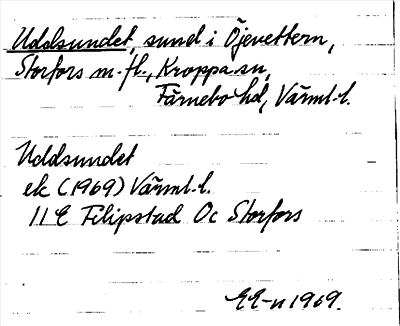 Uddsundet, sund i Öjevettern,
Storfors m.fl., Kroppa sn,
Färnebo hd, Värml.l.
Uddsundet
ek (1969) Värml.l.
11 E Filipstad 0c Storfors
EE-n 1969.